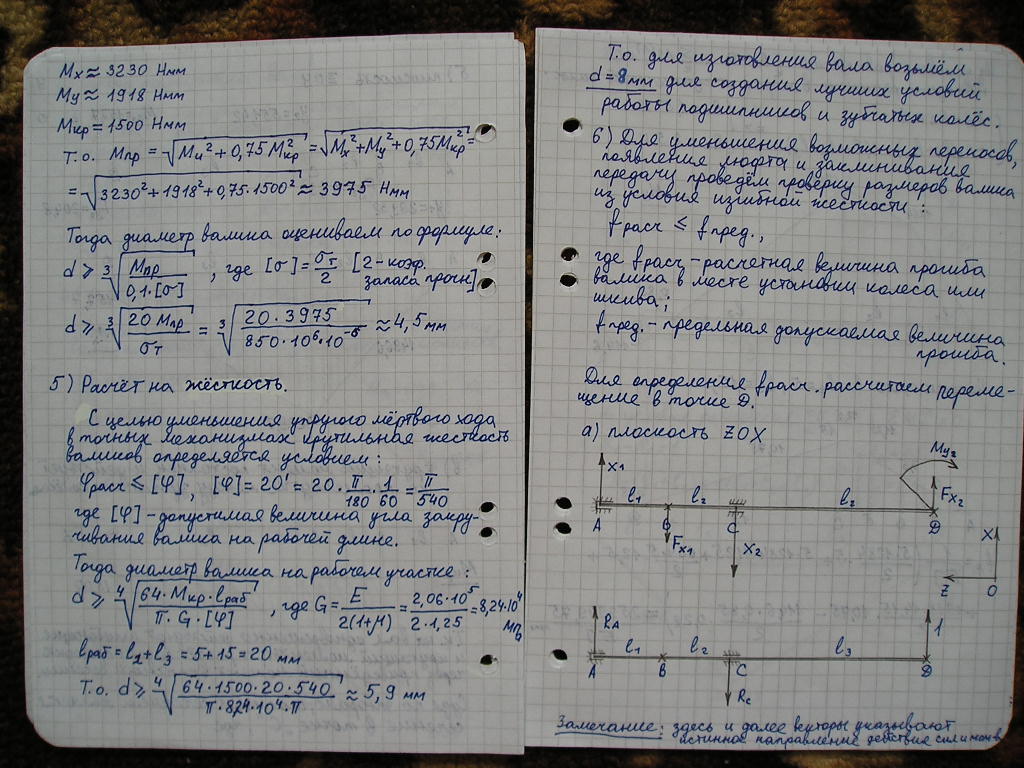 Mx ≈ 3230 Нмм
My ≈ 1918 Нмм
Mкр = 1500 Нмм
Т.о. Mпр = √(Mи² + 0,75Mкр²) = √(Mx² + My² + 0,75Mкр²) =
= √(3230² + 1918² + 0,75·1500²) ≈ 3975 Нмм
Тогда диаметр валика оцениваем по формуле:
d ≥ ∛(Mпр / 0,1·[σ]) , где [σ] = σт/2 [2-коэф. запаса прочн]
d ≥ ∛(20 Mпр / σт) = ∛(20·3975 / 850·10⁶·10⁻⁶) ≈ 4,5 мм
5) Расчёт на жёсткость.
С целью уменьшения упругого мёртвого хода
в точных механизмах крутильная жесткость
валиков определяется условием:
φрасч ≤ [φ], [φ] = 20' = 20·π/180·1/60 = π/540
где [φ] - допустимая величина угла закру-
чивания валика на рабочей длине.
Тогда диаметр валика на рабочем участке:
d ≥ ∜(64·Mкр·lраб / π·G·[φ]) , где G = E/2(1+μ) = 2,06·10⁵/2·1,25 = 8,24·10⁴ МПа
lраб = l2 + l3 = 5 + 15 = 20 мм
Т.о. d ≥ ∜(64·1500·20·540 / π·8,24·10⁴·π) ≈ 5,9 мм
Т.о. для изготовления вала возьмём
d = 8мм для создания лучших условий
работы подшипников и зубчатых колёс.
6) Для уменьшения возможных перекосов,
появления люфта и заклинивания
передачи проведём проверку размеров валика
из условия изгибной жесткости:
fрасч ≤ fпред.,
где fрасч - расчетная величина прогиба
валика в месте установки колеса или
шкива;
fпред. - предельная допускаемая величина
прогиба.
Для определения fрасч. рассчитаем переме-
щение в точке D.
а) плоскость ZOX
My2
X1 l1 l2 l2 Fx2
A B C D
Fx1 X2 X
Z O
RA l1 l2 l3 1
A B C D
Rc
Замечание: здесь и далее векторы указывают
истинное направление действия сил и момен.